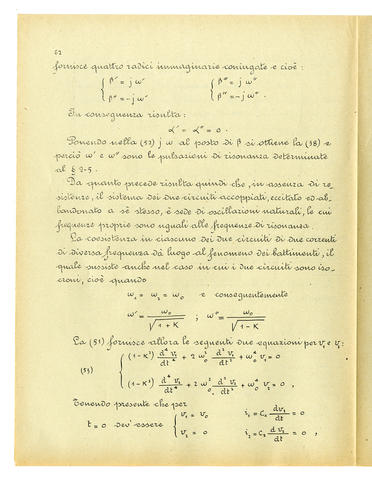 62
fornisce quattro radici immaginarie coniugate e cioè :
β' = j ω'        β" = j ω"
β' = - j ω'        β" = - j ω" .
In conseguenza risulta :
α' = α" = 0 .
Ponendo nella (52) j ω al posto di β si ottiene la (38) e
perciò ω' e ω" sono le pulsazioni di risonanza determinate
al § 2-5 .
Da quanto precede risulta quindi che , in assenza di re-
sistenze , il sistema dei due circuiti accoppiati, eccitato ed ab-
bandonato a sè stesso , è sede di oscillazioni naturali, le cui
frequenze proprie sono uguali alle frequenze di risonanza .
La coesistenza in ciascuno dei due circuiti di due correnti
di diversa frequenza dà luogo al fenomeno dei battimenti , il
quale sussiste anche nel caso in cui i due circuiti sono iso-
croni, cioè quando
ω₁ = ω₂ = ω₀   e conseguentemente
ω' = ω₀ / √(1 + K)   ;   ω" = ω₀ / √(1 - K)
La (51) fornisce allora le seguenti due equazioni per v₁ e v₂ :
(1-K²) d⁴v₁/dt⁴ + 2 ω₀² d²v₁/dt² + ω₀⁴ v₁ = 0
(53)
(1-K²) d⁴v₂/dt⁴ + 2 ω₀² d²v₂/dt² + ω₀⁴ v₂ = 0 ,
Tenendo presente che per
t = 0 dev' essere
v₁ = v₀        i₁ = C₁ dv₁/dt = 0
v₂ = 0        i₂ = C₂ dv₂/dt = 0 ,